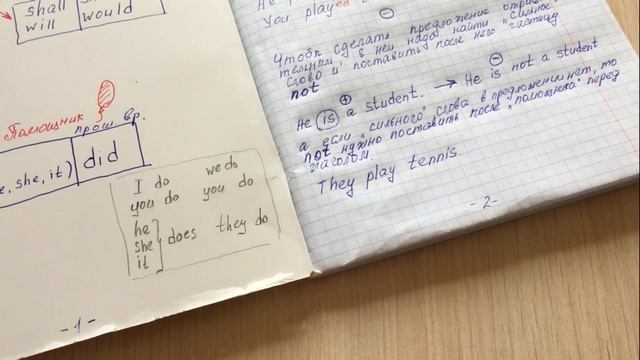 shall
will would
Помощник
прош. вр.
she, it) did
I do we do
you do you do
he
she does they do
it
-1-
You played
Чтобы сделать предложение отриц
тельним, в нем надо найти "сильное"
слово и поставить после него частицу
not
He is a student. → He is not a student
а если "сильного" слова в предложении нет, то
not нужно поставить после "помощника" перед
глаголом.
They play tennis.
-2-